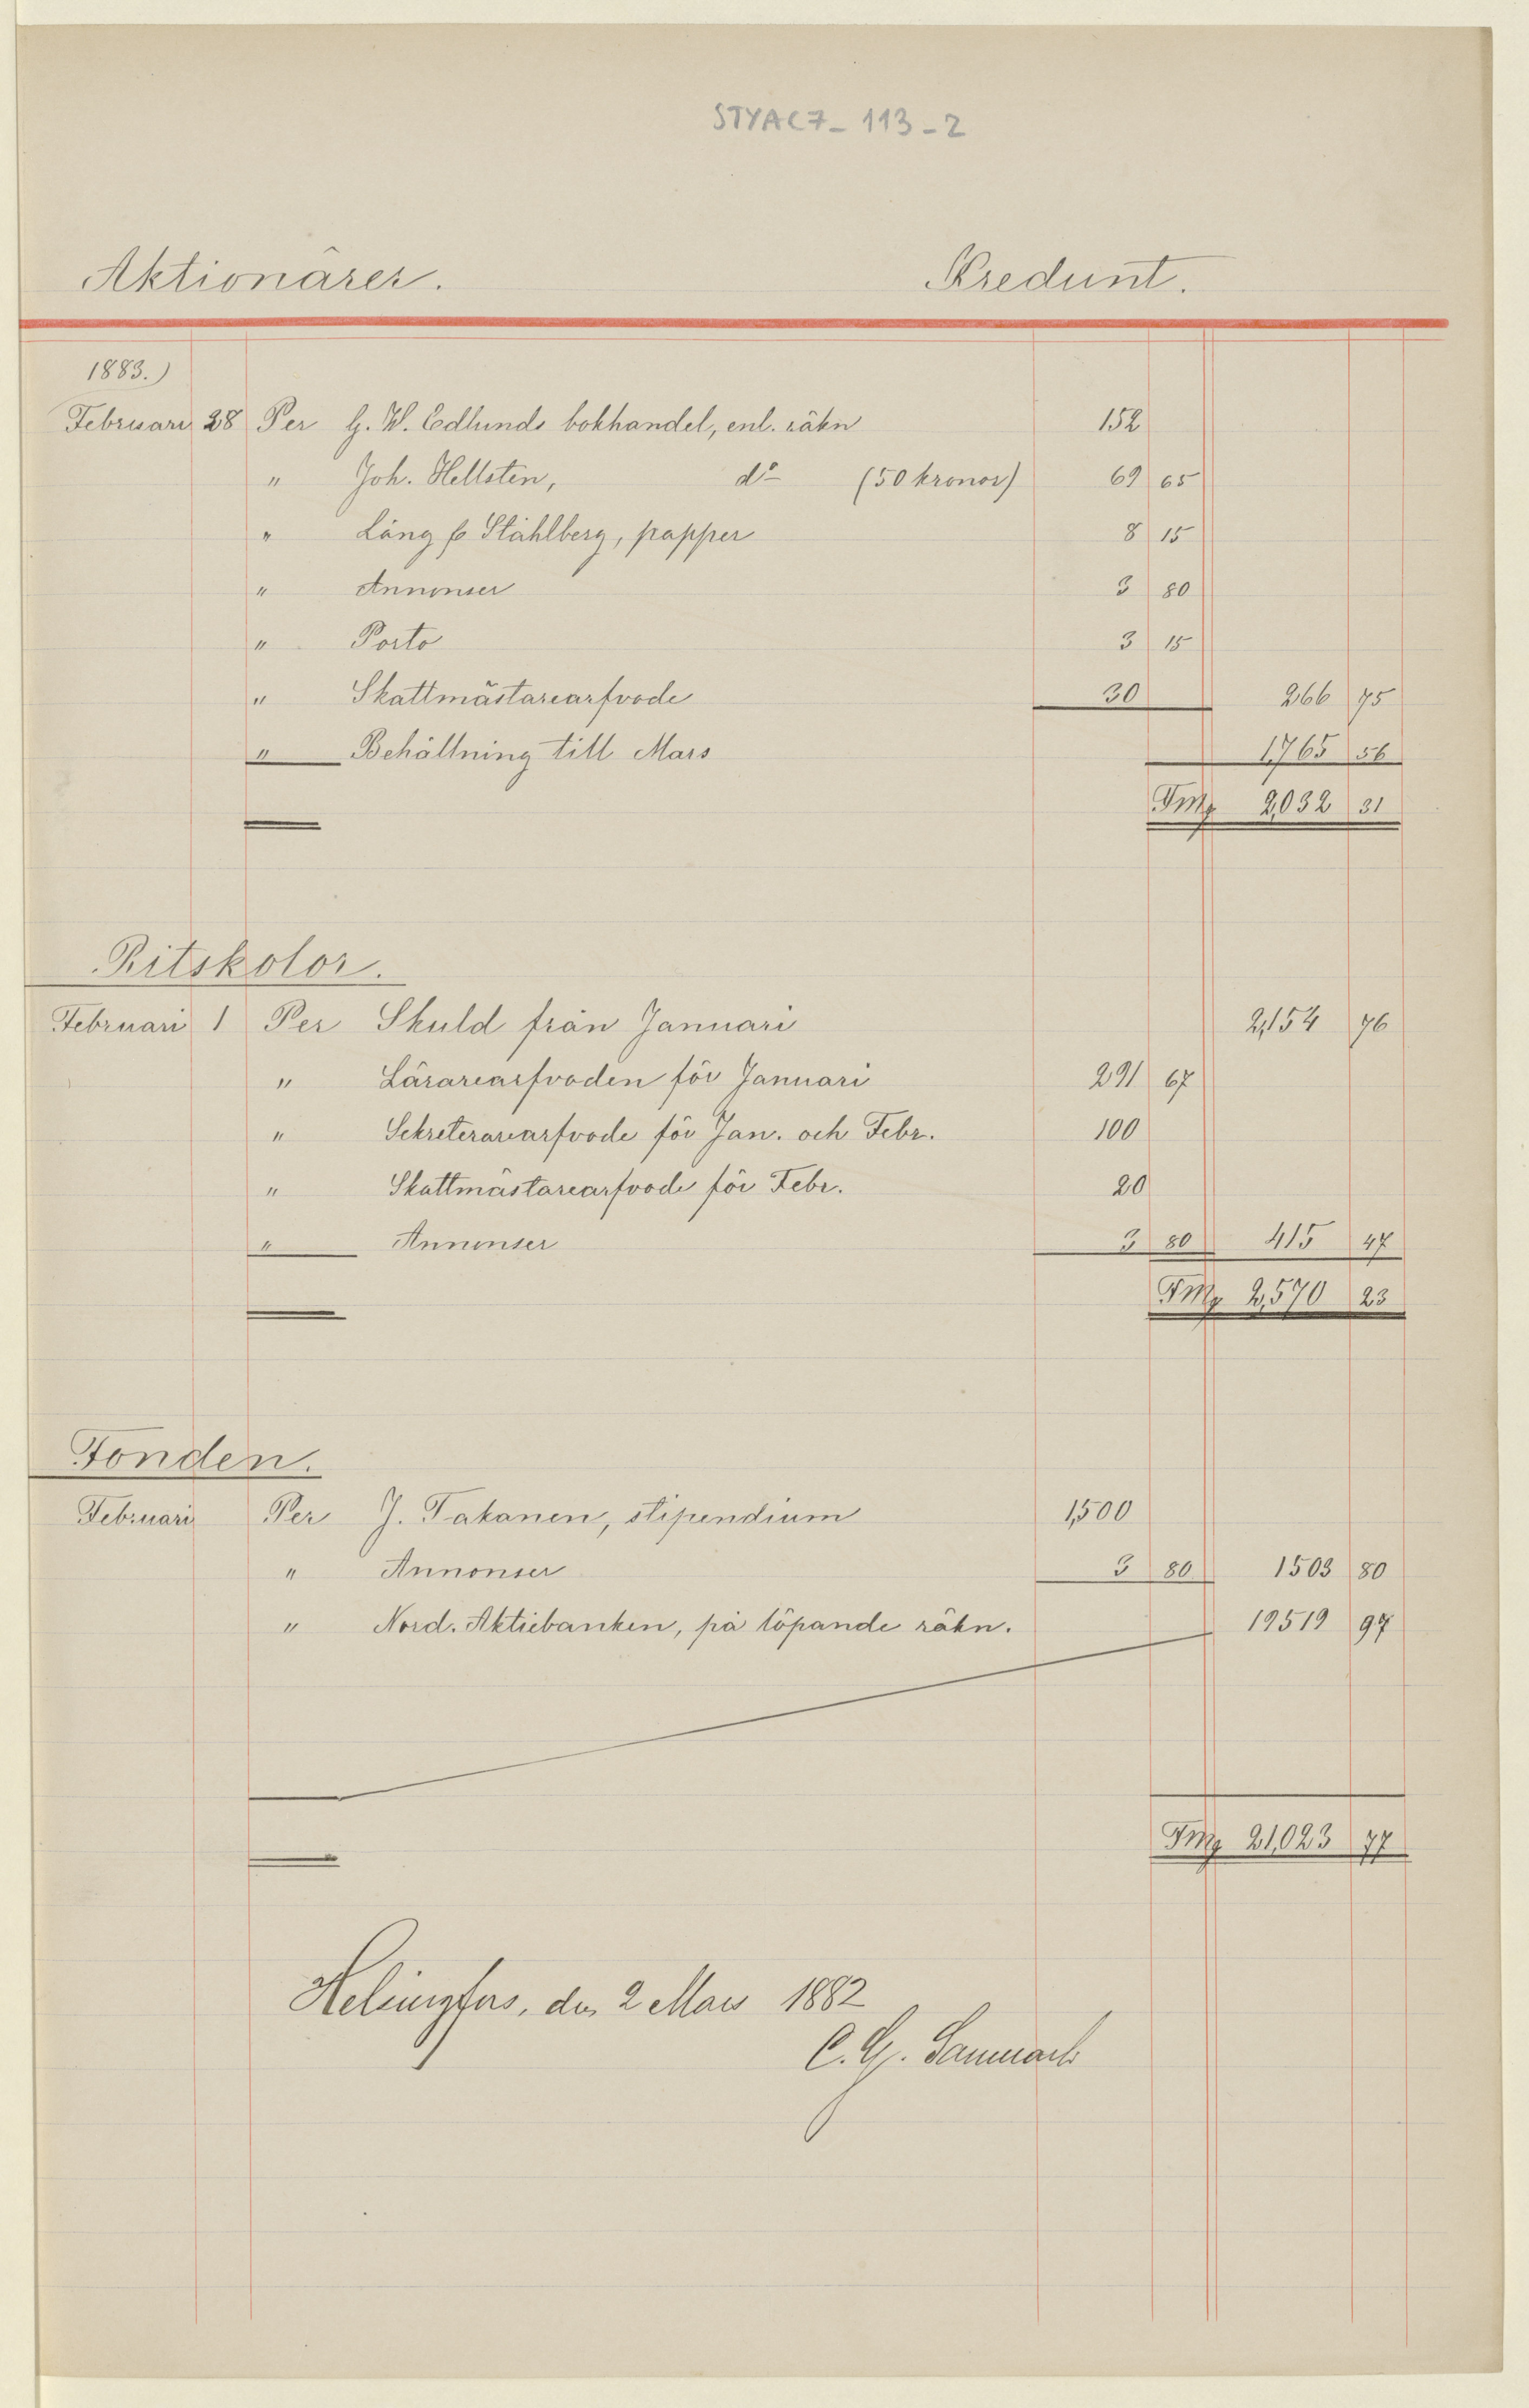 STYAC7-113-2
Aktionärer. Kredunt.
1883.)
Februari 28 Per G. W. Edlunds bokhandel, enl. räkn 152
" Joh. Hellsten, do (50 kronor) 69 65
" Lång & Ståhlberg, papper 8 15
" Annonser 3 80
" Porto 3 15
" Skattmästarearfvode 30 266 75
" Behållning till Mars 1,765 56
Fmk 2,032 31
Ritskolor.
Februari 1 Per Skuld från Januari 2,154 76
" Lärarearfvoden för Januari 291 67
" Sekreterarearfvode för Jan. och Febr. 100
" Skattmästarearfvode för Febr. 20
" Annonser 3 80 415 47
Fmk 2,570 23
Fonden.
Februari Per J. Takanen, stipendium 1,500
" Annonser 3 80 1503 80
" Nord. Aktiebanken, på löpande räkn. 19519 97
Fmk 21,023 77
Helsingfors, den 2 Mars 1882
C. G.